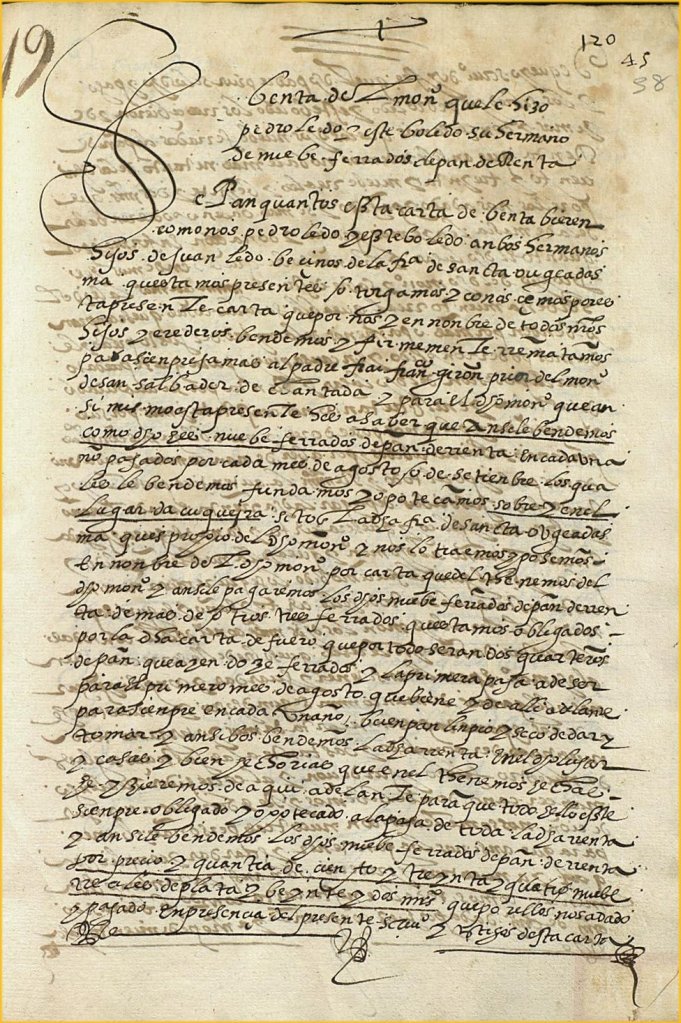 19
120
45
38
benta de L monº que le hizo
pedro ledo y estebo ledo su hermano
de nuebe ferrados de pan de Renta
Pan quantos esta carta de benta bieren
como nos pedro ledo y estebo ledo anbos hermanos
hijos de juan ledo becinos de la fra de sancta ougea das
ma questamos presentes
ta presente carta que por nos y en nonbre de todos nros
hijos y erederos bendemos y firmemente rrematamos
para sienpre jamas al padre frai franco giron prior del monº
de san salbador de chantada y para el dho monº que an
si mismo esta presente hes a saber que ansi le bendemos
como dho hes nuebe ferrados de pan de rrenta en cada un a
ño pagados por cada mes de agosto de setienbre los qua
les le bendemos fundamos y ypotecamos sobre y en el
lugar da cuqueira sito en La dha fra de sancta ougea das
ma ques propio del dho monrº y nos lo traemos y posemos
en nonbre de L dho monº por carta que del thenemos del
dho monº y ansi le pagaremos los dhos nuebe ferrados de pan de rren
ta demas de otros tres ferrados questamos obligados
por la dha carta de fuero que por todo seran dos quarteiros
de pan que azen doze ferrados y la primera paga a de ser
para el primero mes de agosto que biene y de alli adelante
para sienpre en cada un año buen pan linpio y seco de dar y
tomar y ansi bos bendemos La dha rrenta en el dho lugar
y casas y bien que en el thenemos
y hizieremos de aqui adelante para que todo ello este
sienpre obligado y ypotecado a la paga de toda la dha rrenta
y ansi le bendemos los dhos nuebe ferrados de pan de rrenta
por precio y quantia de ciento y treynta y quatro nuebe
rreales de plata y beynte y dos mrs que por ellos nos a dado
y pagado en presencia del presente scriuº y testigos desta carta